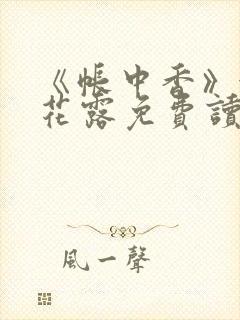 《帳中香》
花露免費讀
風一聲